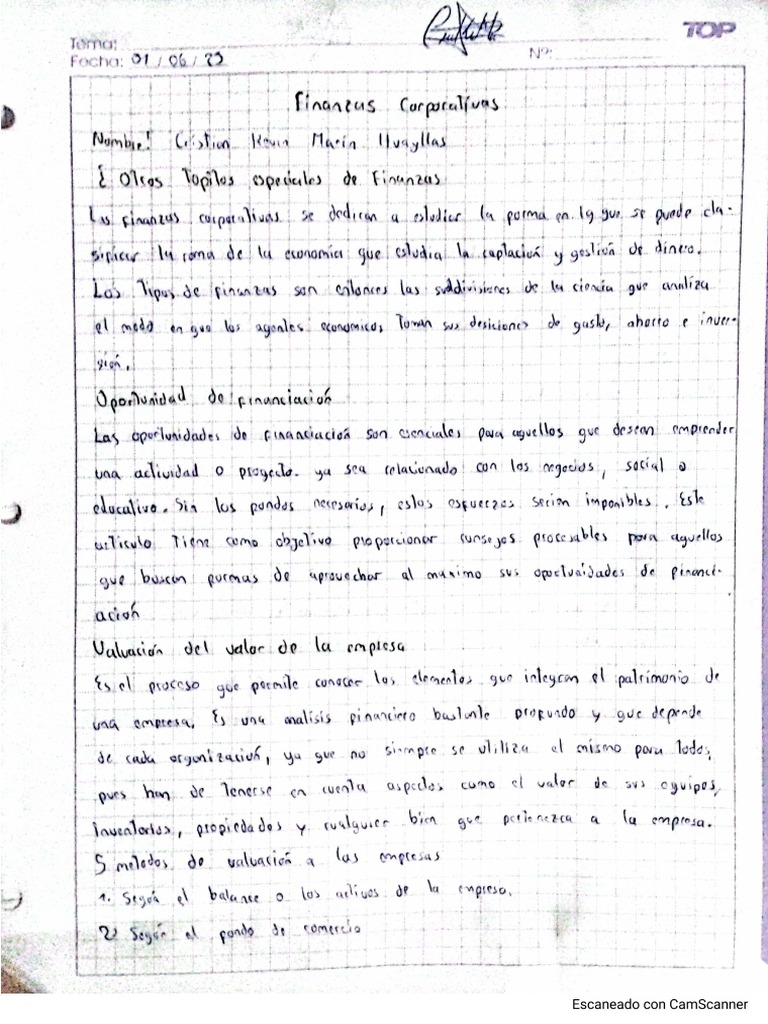 TOP
Tema:
Fecha: 01 / 06 / 23
Nº:
Finanzas Corporativas
Nombre: Cristian Kevin Marin Huayllas
Otros Topilos especiales de Finanzas
Las finanzas corporativas se dedican a estudier la forma en la que se puede cla-
sificar la rama de la economía que estudia la captación y gestión de dinero.
Los Tipos de finanzas son entonces las subdivisiones de la ciencia que analiza
el modo en que los agentes economicos Toman sus desiciones de gasto, ahorro e inver-
sión.
Oportunidad de financiación
Las oportunidades de financiación son esenciales para aquellos que desean emprender
una actividad o proyecto. ya sea relacionado con los negocios, social o
educativo. Sin los fondos necesarios, estos esfuerzos serian imponibles. Este
articulo Tiene como objetivo proporcionar consejos procesables para aquellos
que buscan formas de aprovechar al maximo sus oportuidades de financi-
ación
Valuación del valor de la empresa
Es el proceso que permite conocer los elementos que integran el patrimonio de
una empresa. Es una analisis financiero bastante profundo y que depende
de cada organización, ya que no siempre se utiliza el mismo para Todos,
pues han de Tenerse en cuenta aspectos como el valor de sus equipos,
inventarios, propiedados y cualquier bien que pertenezca a la empresa.
5 metodos de valuación a las empresas
1. Según el balance o los activos de la empresa.
2) Según el fondo de comercio
Escaneado con CamScanner